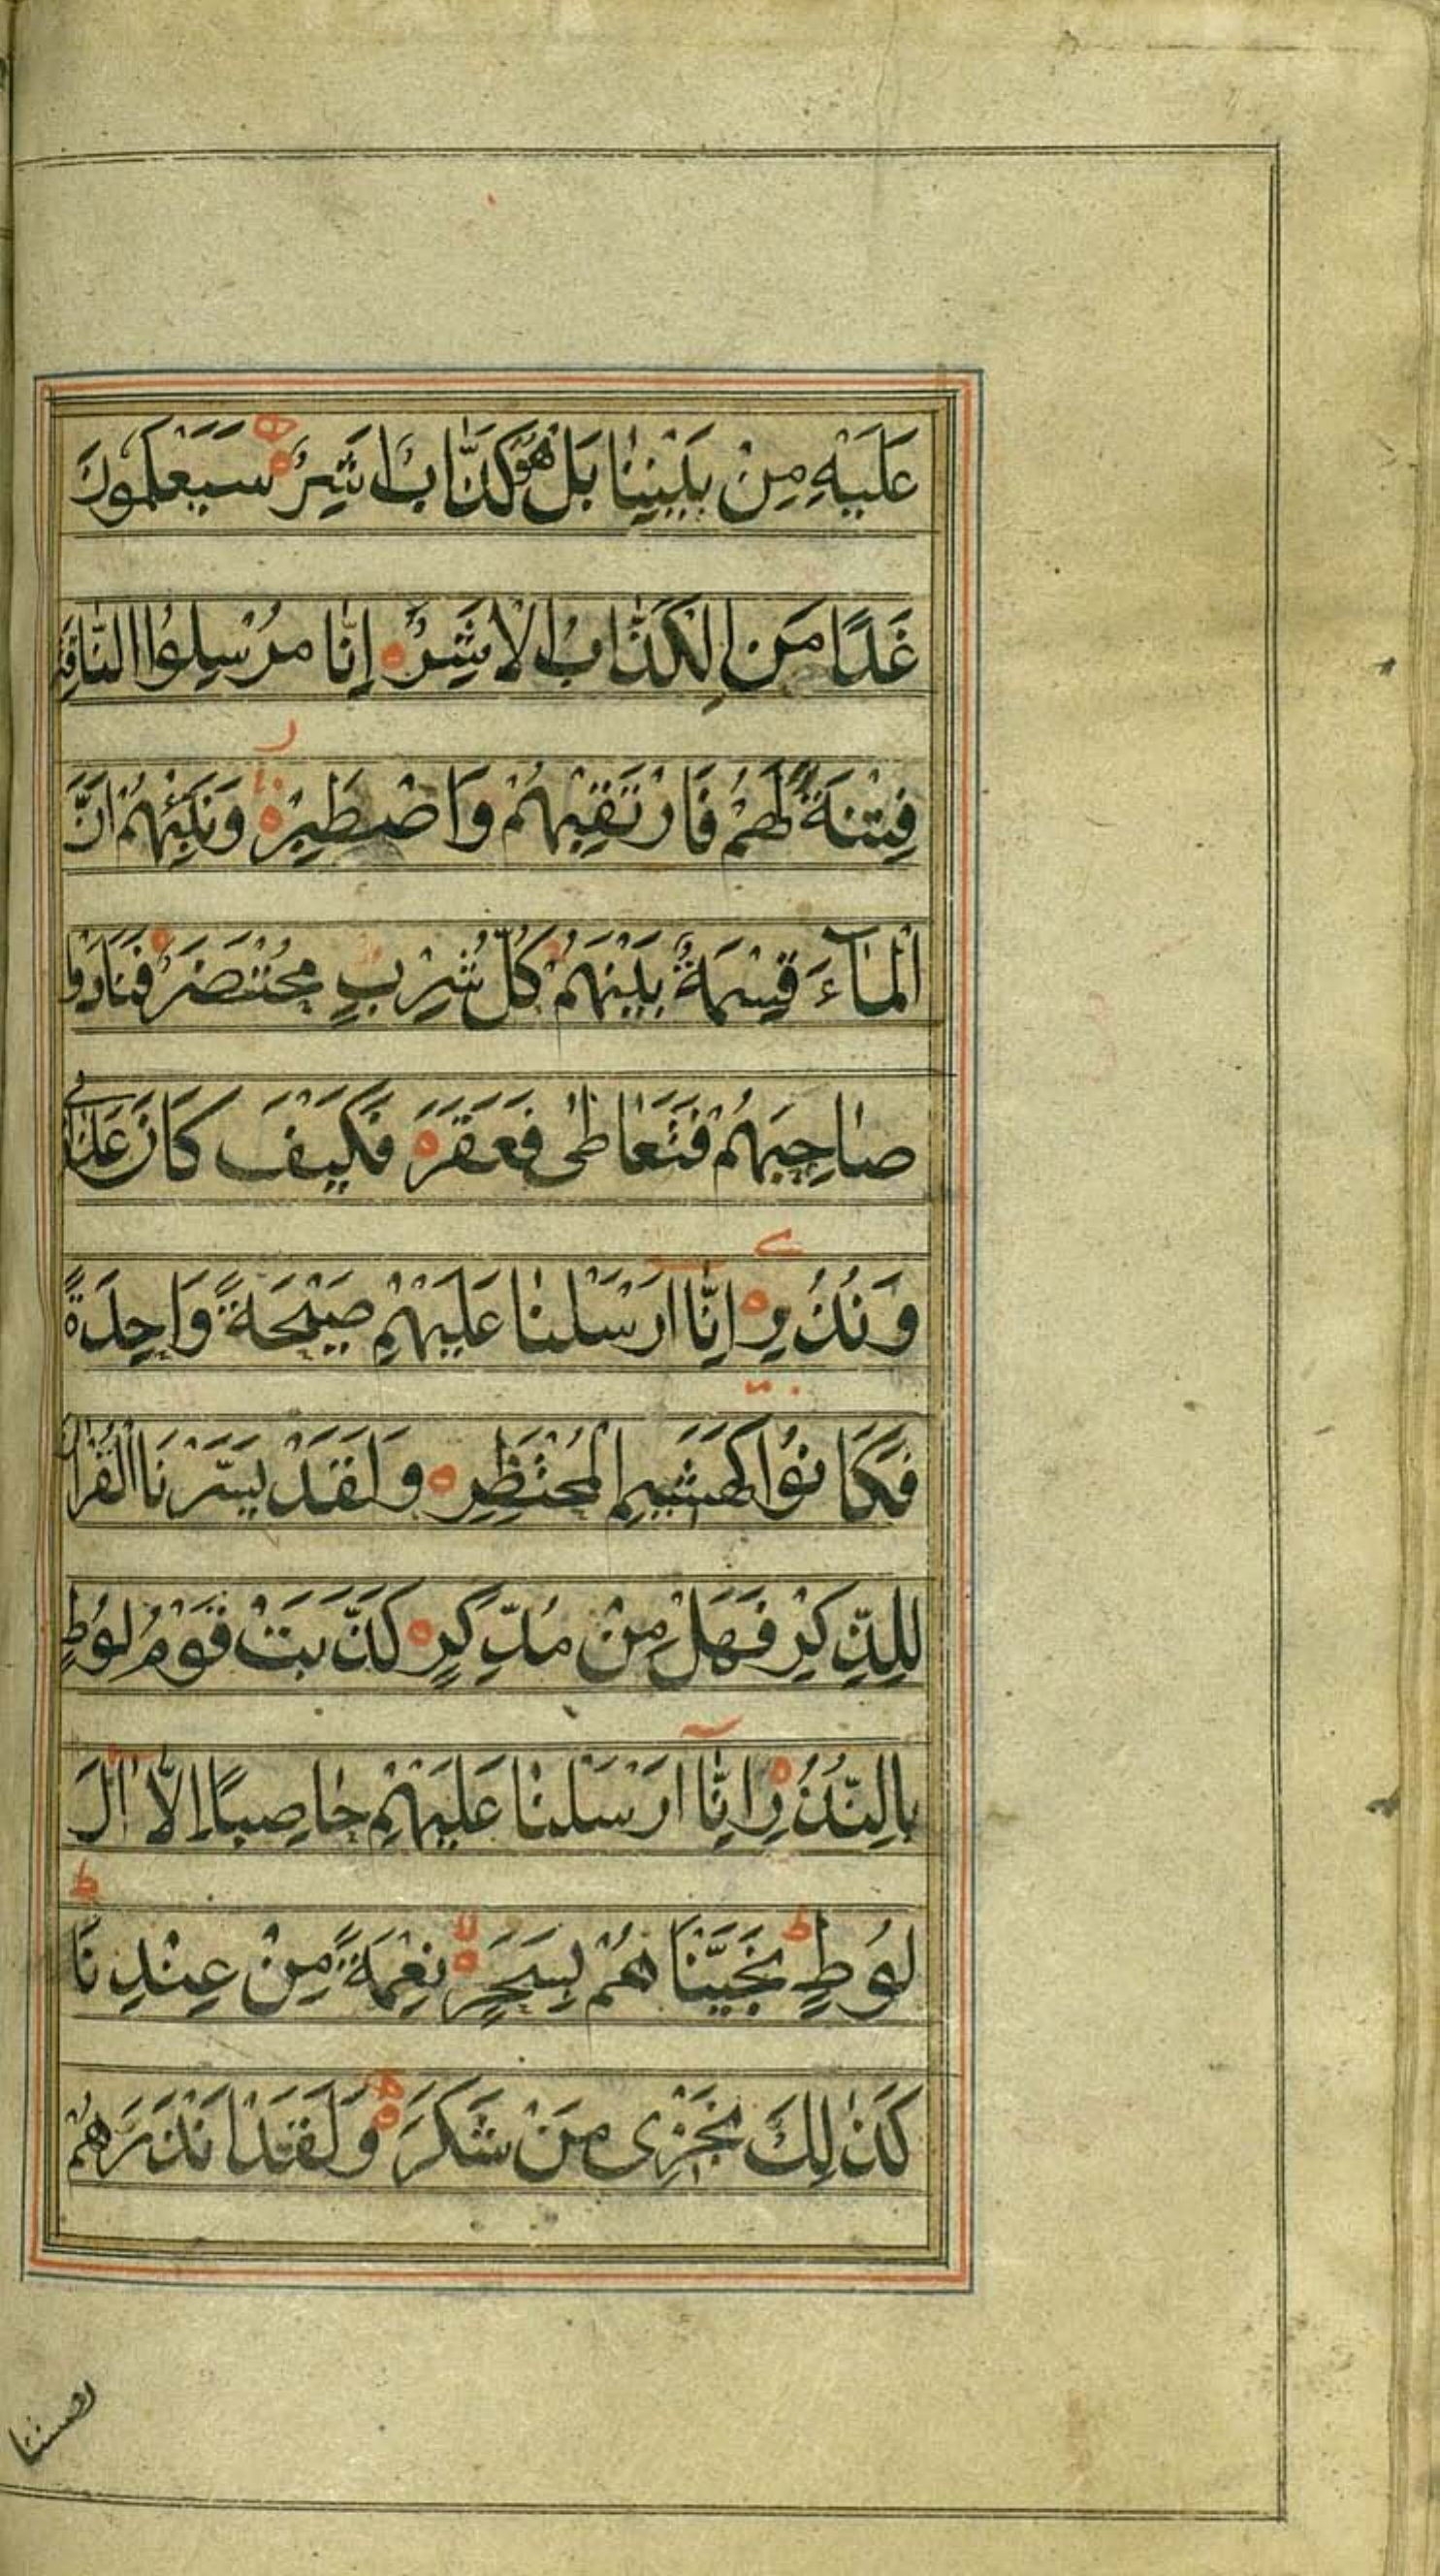 عَلَيْهِ مِنْ بَيْنِنَا بَلْ هُوَ كَذَّابٌ اَشِرٌ ہ سَيَعْلَمُونَ
غَدًا مَنِ الْكَذَّابُ الْاَشِرُ ہ اِنَّا مُرْسِلُوا النَّاقَةِ
فِتْنَةً لَهُمْ فَارْتَقِبْهُمْ وَاصْطَبِرْ ہ وَنَبِّئْهُمْ اَنَّ
الْمَآءَ قِسْمَةٌ بَيْنَهُمْ كُلُّ شِرْبٍ مُحْتَضَرٌ ہ فَنَادَوْا
صَاحِبَهُمْ فَتَعَاطٰى فَعَقَرَ ہ فَكَيْفَ كَانَ عَذَابِي
وَنُذُرِ ہ اِنَّا اَرْسَلْنَا عَلَيْهِمْ صَيْحَةً وَاحِدَةً
فَكَانُوا كَهَشِيمِ الْمُحْتَظِرِ ہ وَلَقَدْ يَسَّرْنَا الْقُرْاٰنَ
لِلذِّكْرِ فَهَلْ مِنْ مُدَّكِرٍ ہ كَذَّبَتْ قَوْمُ لُوطٍ
بِالنُّذُرِ ہ اِنَّآ اَرْسَلْنَا عَلَيْهِمْ حَاصِبًا اِلَّآ اٰلَ
لُوطٍ ط نَجَّيْنَاهُمْ بِسَحَرٍ ہ لا نِعْمَةً مِنْ عِنْدِنَا ط
كَذٰلِكَ نَجْزِى مَنْ شَكَرَ ہ وَلَقَدْ اَنْذَرَهُمْ